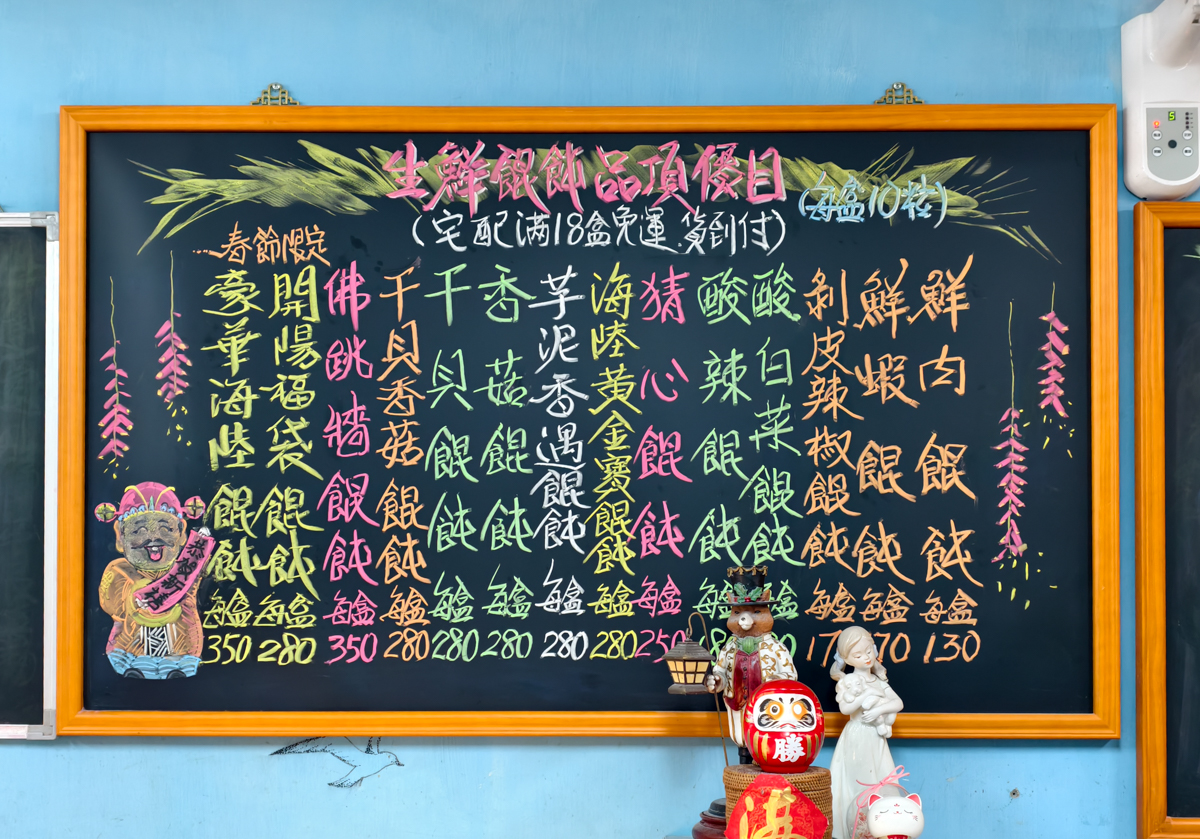 生鮮餛飩品項價目
(每盒10粒)
(宅配滿18盒免運.貨到付)
鮮肉餛飩每盒130
鮮蝦餛飩每盒70
剝皮辣椒餛飩每盒17
酸白菜餛飩盒
酸辣餛飩每
猜心餛飩每盒250
海陸黃金寶餛飩每盒280
芋泥香遇餛飩每盒280
香菇餛飩每盒280
干貝餛飩每盒280
干貝香菇餛飩每盒280
佛跳牆餛飩每盒350
…春節限定
開陽福袋餛飩每盒280
豪華海陸餛飩每盒350
勝